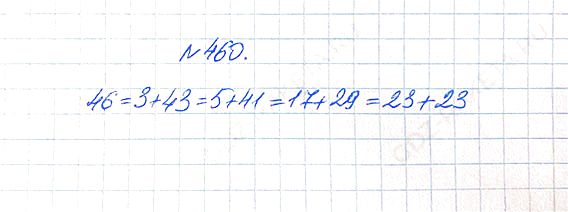 №460.
46=3+43=5+41=17+29=23+23